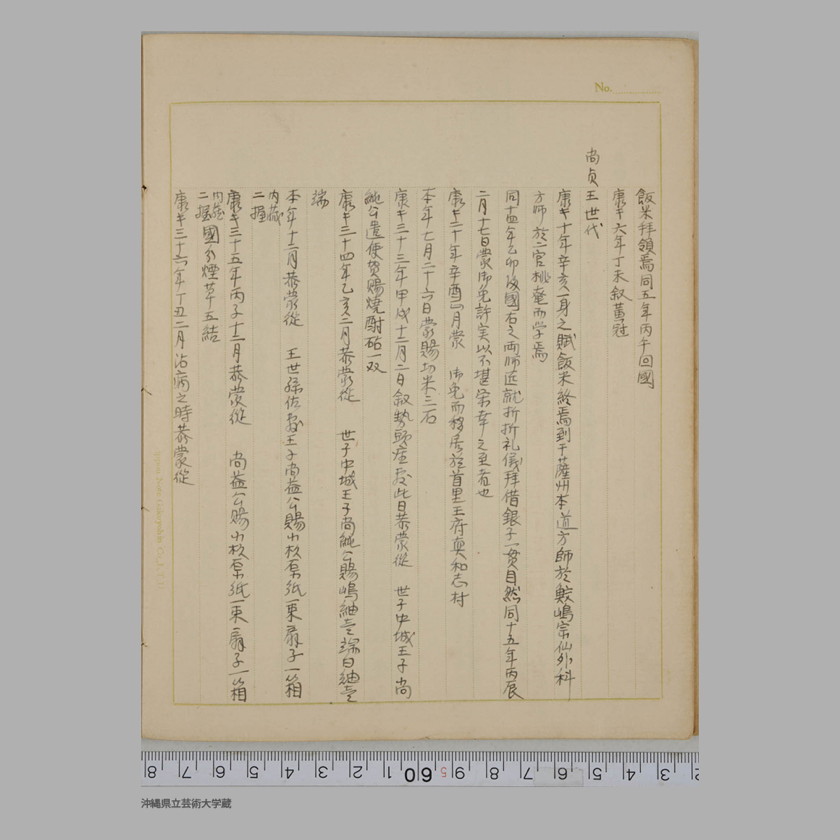 No.
飯米拝領焉同五年丙午回國
康キ六年丁未叙黄冠
尚貞王世代
康キ十年辛亥一身之賦飯米終焉到于薩州本道方師於鮫嶋宗仙外科
方師於二宮桃菴而学焉
同十四年乙卯復國右之両師匠就折折礼儀拝借銀子一貫目然同十五年丙辰
二月十七日蒙御免許実以不堪栄幸之至者也
康キ二十年辛酉四月蒙 御免而移居於首里王府真和志村
本年七月二十六日蒙賜切米三石
康キ三十三年甲戌十二月二日叙勢頭座敷此日恭蒙従 世子中城王子尚
純公遣使賀賜焼酎砳一双
康キ三十四年乙亥二月恭蒙従 世子中城王子尚純公賜嶋紬壱端白紬壱
端
本年十二月恭蒙従 王世孫佐敷王子尚益公賜小杉原紙一束扇子一箱
内蔵二握
康キ三十五年丙子十二月恭蒙従 尚益公賜小杉原紙一束扇子一箱
内蔵二握國分煙草五結
康キ三十六年丁丑二月沾病之時恭蒙従
沖縄県立芸術大学蔵